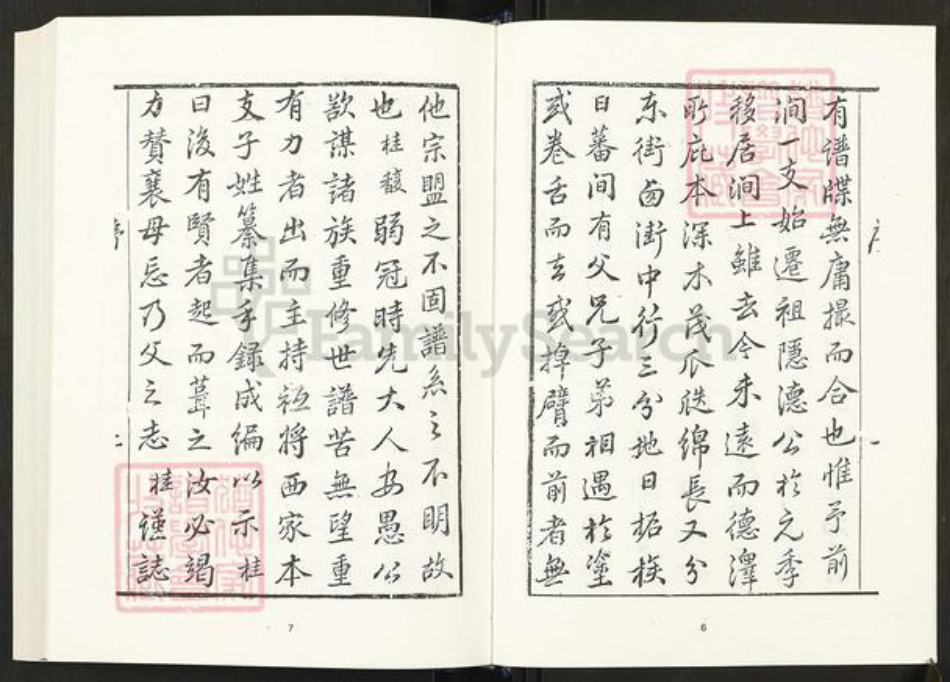 有譜牒無庸撮而合也惟予前
澗一支始遷祖隱德公於元季
移居澗上雖去今未遠而德澤
所庇本深木茂瓜瓞綿長又分
东街卤街中行三分地日拓族
日蕃间有父兄子弟相遇於塗
或卷舌而去或掉臂而前者無
序
一
6
他宗盟之不固譜系之不明故
也桂馥弱冠時先大人安愚公
欲謀諸族重修世譜苦無望重
有力者出而主持袛將西家本
支子姓纂集手録成编以示桂
曰後有賢者起而葺之汝必竭
力贊襄毋忘乃父之志桂謹誌
序
二
7
FamilySearch